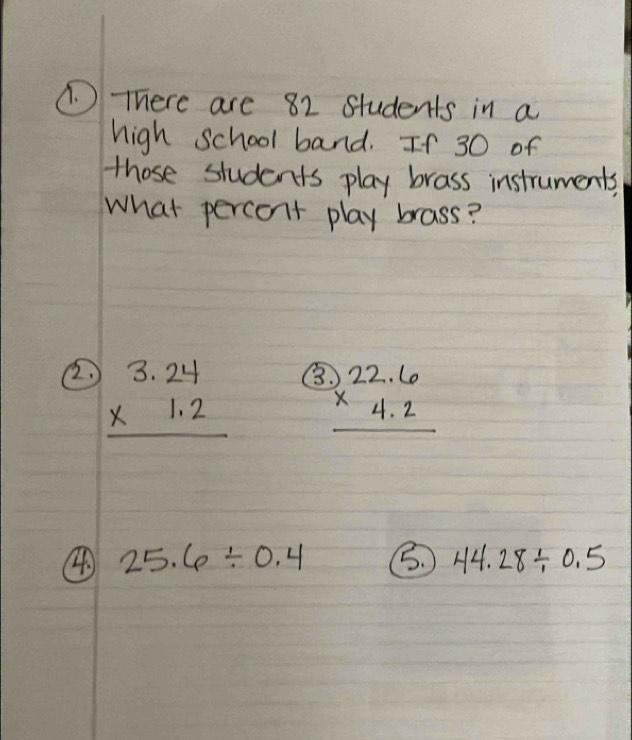 1. There are 82 students in a
high school band. If 30 of
those students play brass instruments,
What percent play brass?
2. 3.24
x 1.2
3. 22.6
x 4.2
4. 25.6 ÷ 0.4
5. 44.28 ÷ 0.5